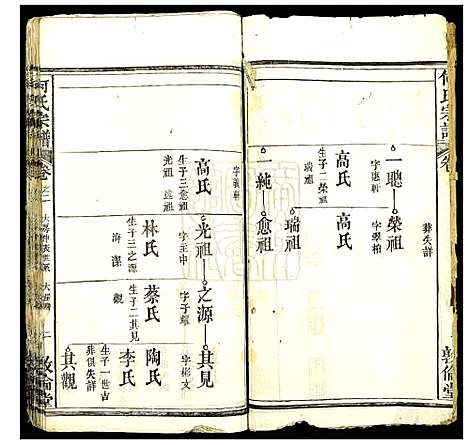 何氏宗譜
卷
敦倫堂
一聰
榮祖
葬失詳
字聰軒
字翠柏
高氏
生子二榮祖
瑞祖
瑞祖
一純
愈祖
字義軒
高氏
生子三愈祖
光祖
光祖
之源
其見
字主中
字子擇
字彬文
林氏
蔡氏
陶氏
生子三之源
生子二其見
生子一世吉
觀
李氏
葬俱失詳
其觀
何氏宗譜
卷之二
敦倫堂